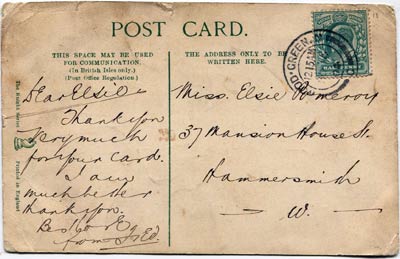 POST CARD.
THIS SPACE MAY BE USED
FOR COMMUNICATION.
(In British Isles only.)
(Post Office Regulation)
Dear Elsie
Thank you
very much
for your card.
I am
much better
thank you.
Best love
from
THE ADDRESS ONLY TO BE
WRITTEN HERE.
Miss. Elsie Pomeroy
37 Mansion House St.
Hammersmith
W.
Printed in England